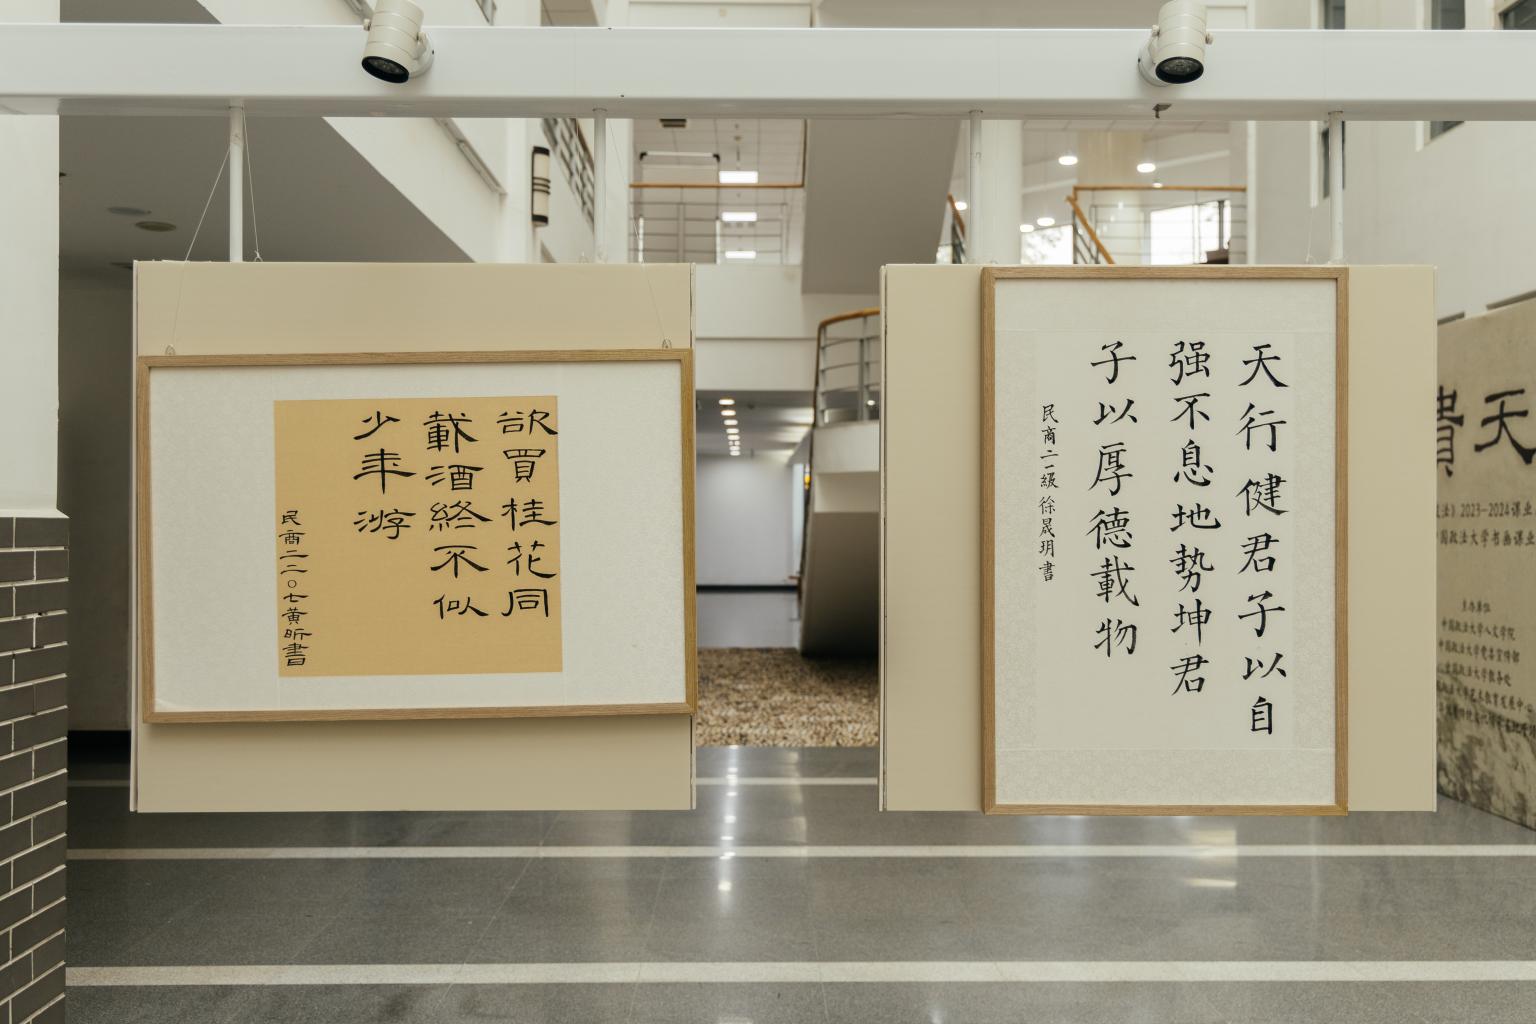 欲買桂花同
載酒終不似
少年游
民商二二〇七黄昕書
天行健君子以自
强不息地势坤君
子以厚德載物
民商二一級徐晟玥書
天
貴
法》2023-2024课业
国政法大学书画课业
主办单位
中国政法大学人文学院
中国政法大学党委宣传部
政法大学教务处